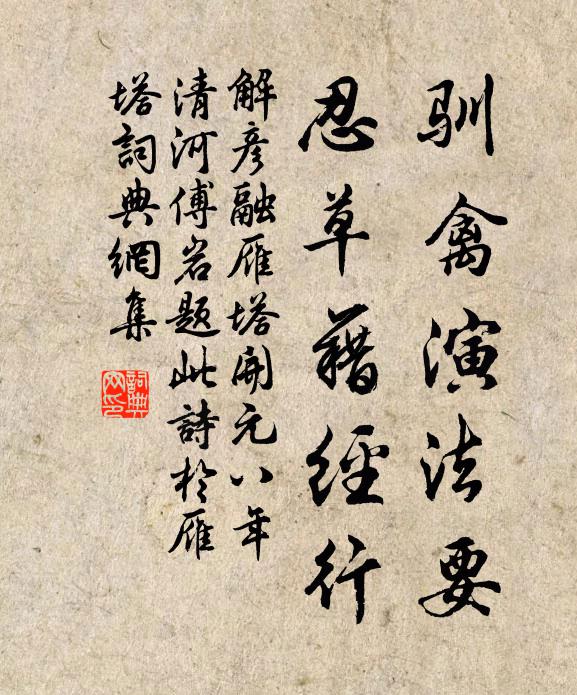 馴禽演法要
忍草藉經行
解彥融雁塔開元八年
清河傅岩題此詩於雁
塔詞典網集
詞典
网印